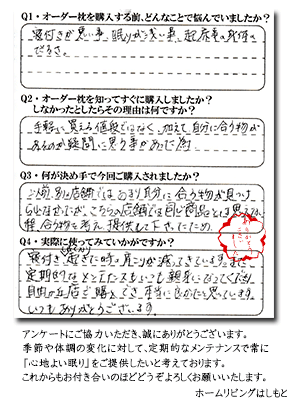 Q1・オーダー枕を購入する前、どんなことで悩んでいましたか？
寝付きが悪い事、眠りが浅い事、起床
だるさ。
Q2・オーダー枕を知ってすぐに購入しましたか？
しなかったとしたらその理由は何ですか？
手軽に買える値段ではなく、加えて自分に合う物が
あるのか疑問に思う事があった
Q3・何が決め手で今回ご購入されましたか？
以前、別の店舗ではあまり自分に合う物が見つけ
られなかったが、こちらの店舗では同じ商品とは思えない
程合う物を考え、提供して下さったため。
Q4・実際に使ってみていかがですか？
寝付き 起きた時、肩こりが減ってきています。また
定期的なメンテナンスもいつも親身になってくださり
自由が丘店で購入でき、本当に良かったと思っています。
いつもありがとうございます。
アンケートにご協力いただき、誠にありがとうございます。
季節や体調の変化に対して、定期的なメンテナンスで常に
「心地よい眠り」をご提供したいと考えております。
これからもお付き合いのほどどうぞよろしくお願いいたします。
ホームリビングはしもと